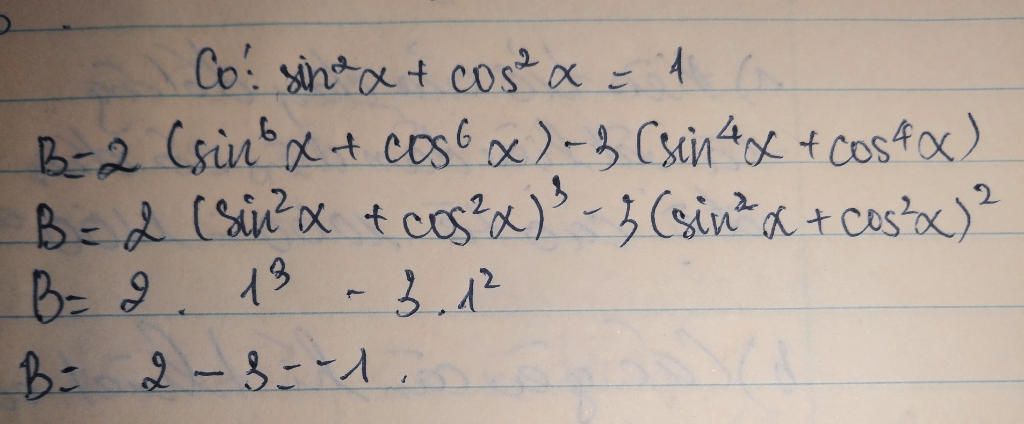 Có: sin²α + cos²α = 1
B = 2 (sin⁶α + cos⁶α) - 3 (sin⁴α + cos⁴α)
B = 2 (sin²α + cos²α)³ - 3 (sin²α + cos²α)²
B = 2 . 1³ - 3 . 1²
B = 2 - 3 = -1.